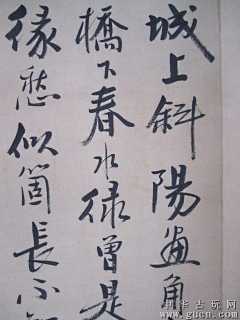 城上斜陽畫角
橋下春水緑曾是
緣愁似箇長不知
中华古玩网
www.gucn.com